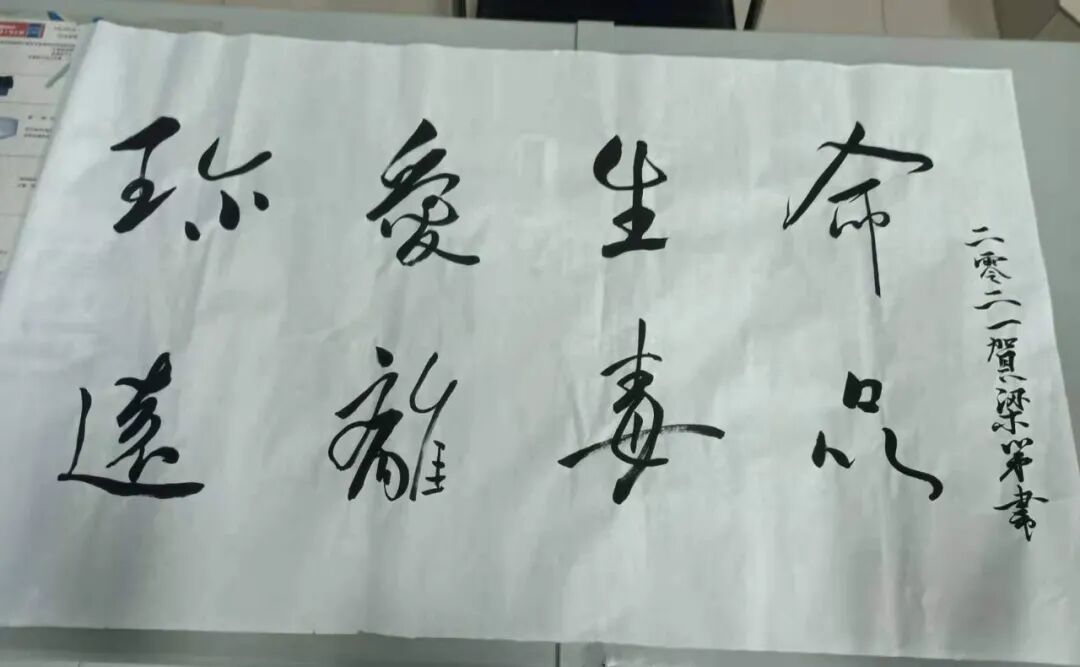 珍愛生命
遠離毒品
二零二一賀梁
書